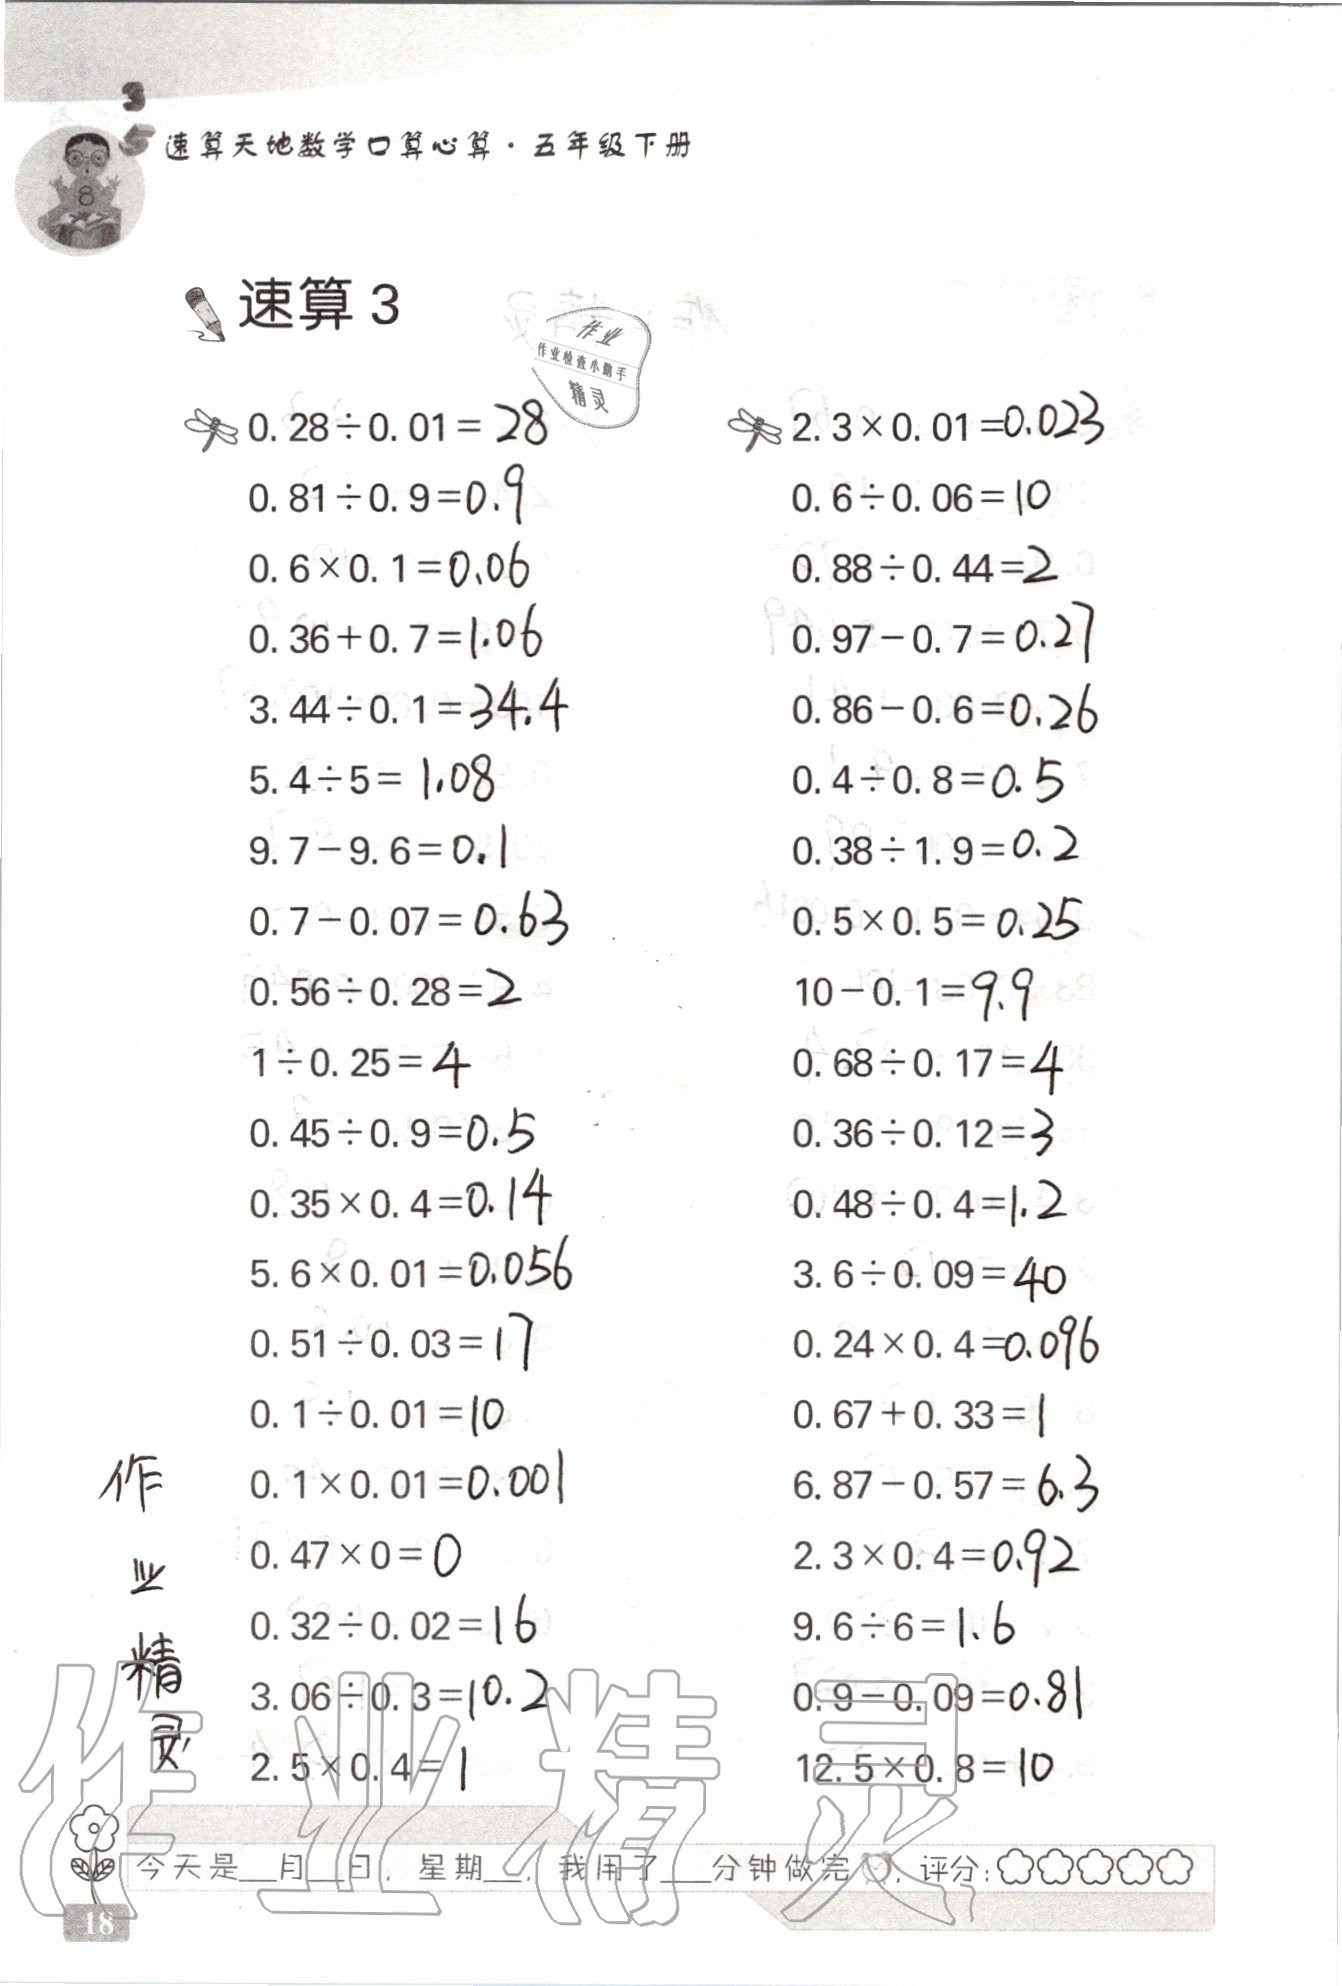 速算天地数学口算心算·五年级下册
速算 3
作业
作业检查小帮手
精灵
0.28÷0.01=28
0.81÷0.9=0.9
0.6×0.1=0.06
0.36+0.7=1.06
3.44÷0.1=34.4
5.4÷5=1.08
9.7-9.6=0.1
0.7-0.07=0.63
0.56÷0.28=2
1÷0.25=4
0.45÷0.9=0.5
0.35×0.4=0.14
5.6×0.01=0.056
0.51÷0.03=17
0.1÷0.01=10
0.1×0.01=0.001
0.47×0=0
0.32÷0.02=16
3.06÷0.3=10.2
2.5×0.4=1
2.3×0.01=0.023
0.6÷0.06=10
0.88÷0.44=2
0.97-0.7=0.27
0.86-0.6=0.26
0.4÷0.8=0.5
0.38÷1.9=0.2
0.5×0.5=0.25
10-0.1=9.9
0.68÷0.17=4
0.36÷0.12=3
0.48÷0.4=1.2
3.6÷0.09=40
0.24×0.4=0.096
0.67+0.33=1
6.87-0.57=6.3
2.3×0.4=0.92
9.6÷6=1.6
0.9-0.09=0.81
12.5×0.8=10
作业精灵
作业精灵
今天是___月___日，星期___，我用了____分钟做完，评分：
18